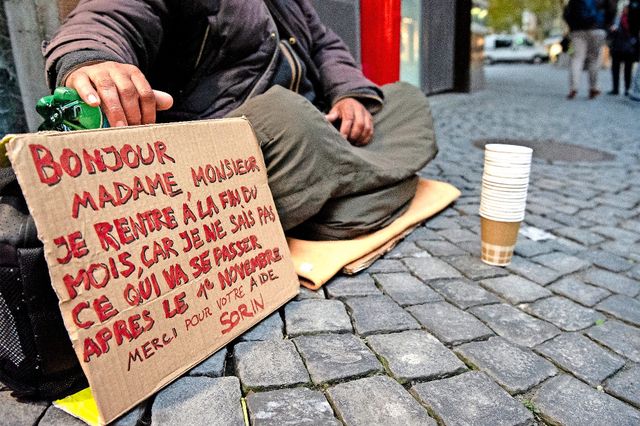 BONJOUR
MADAME, MONSIEUR
JE RENTRE À LA FIN DU
MOIS, CAR JE NE SAIS PAS
CE QUI VA SE PASSER
APRÈS LE 1ᵉ NOVEMBRE
MERCI POUR VOTRE AIDE
SORIN